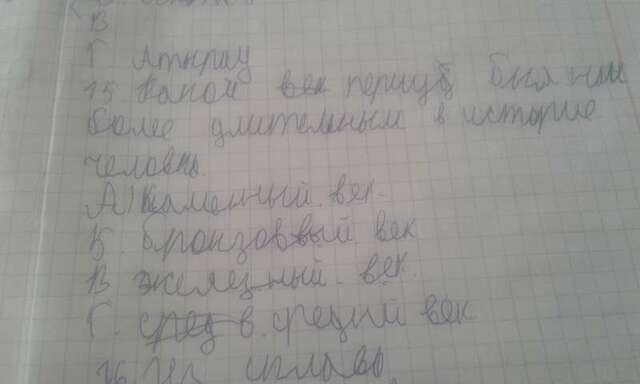 В
Г Атырау
15 Какой век период был наи
более длительным в историе
человека
А) Каменный век.
Б. бронзоввый век
В железный век.
Г. сред в. средний век
16. Из сплава